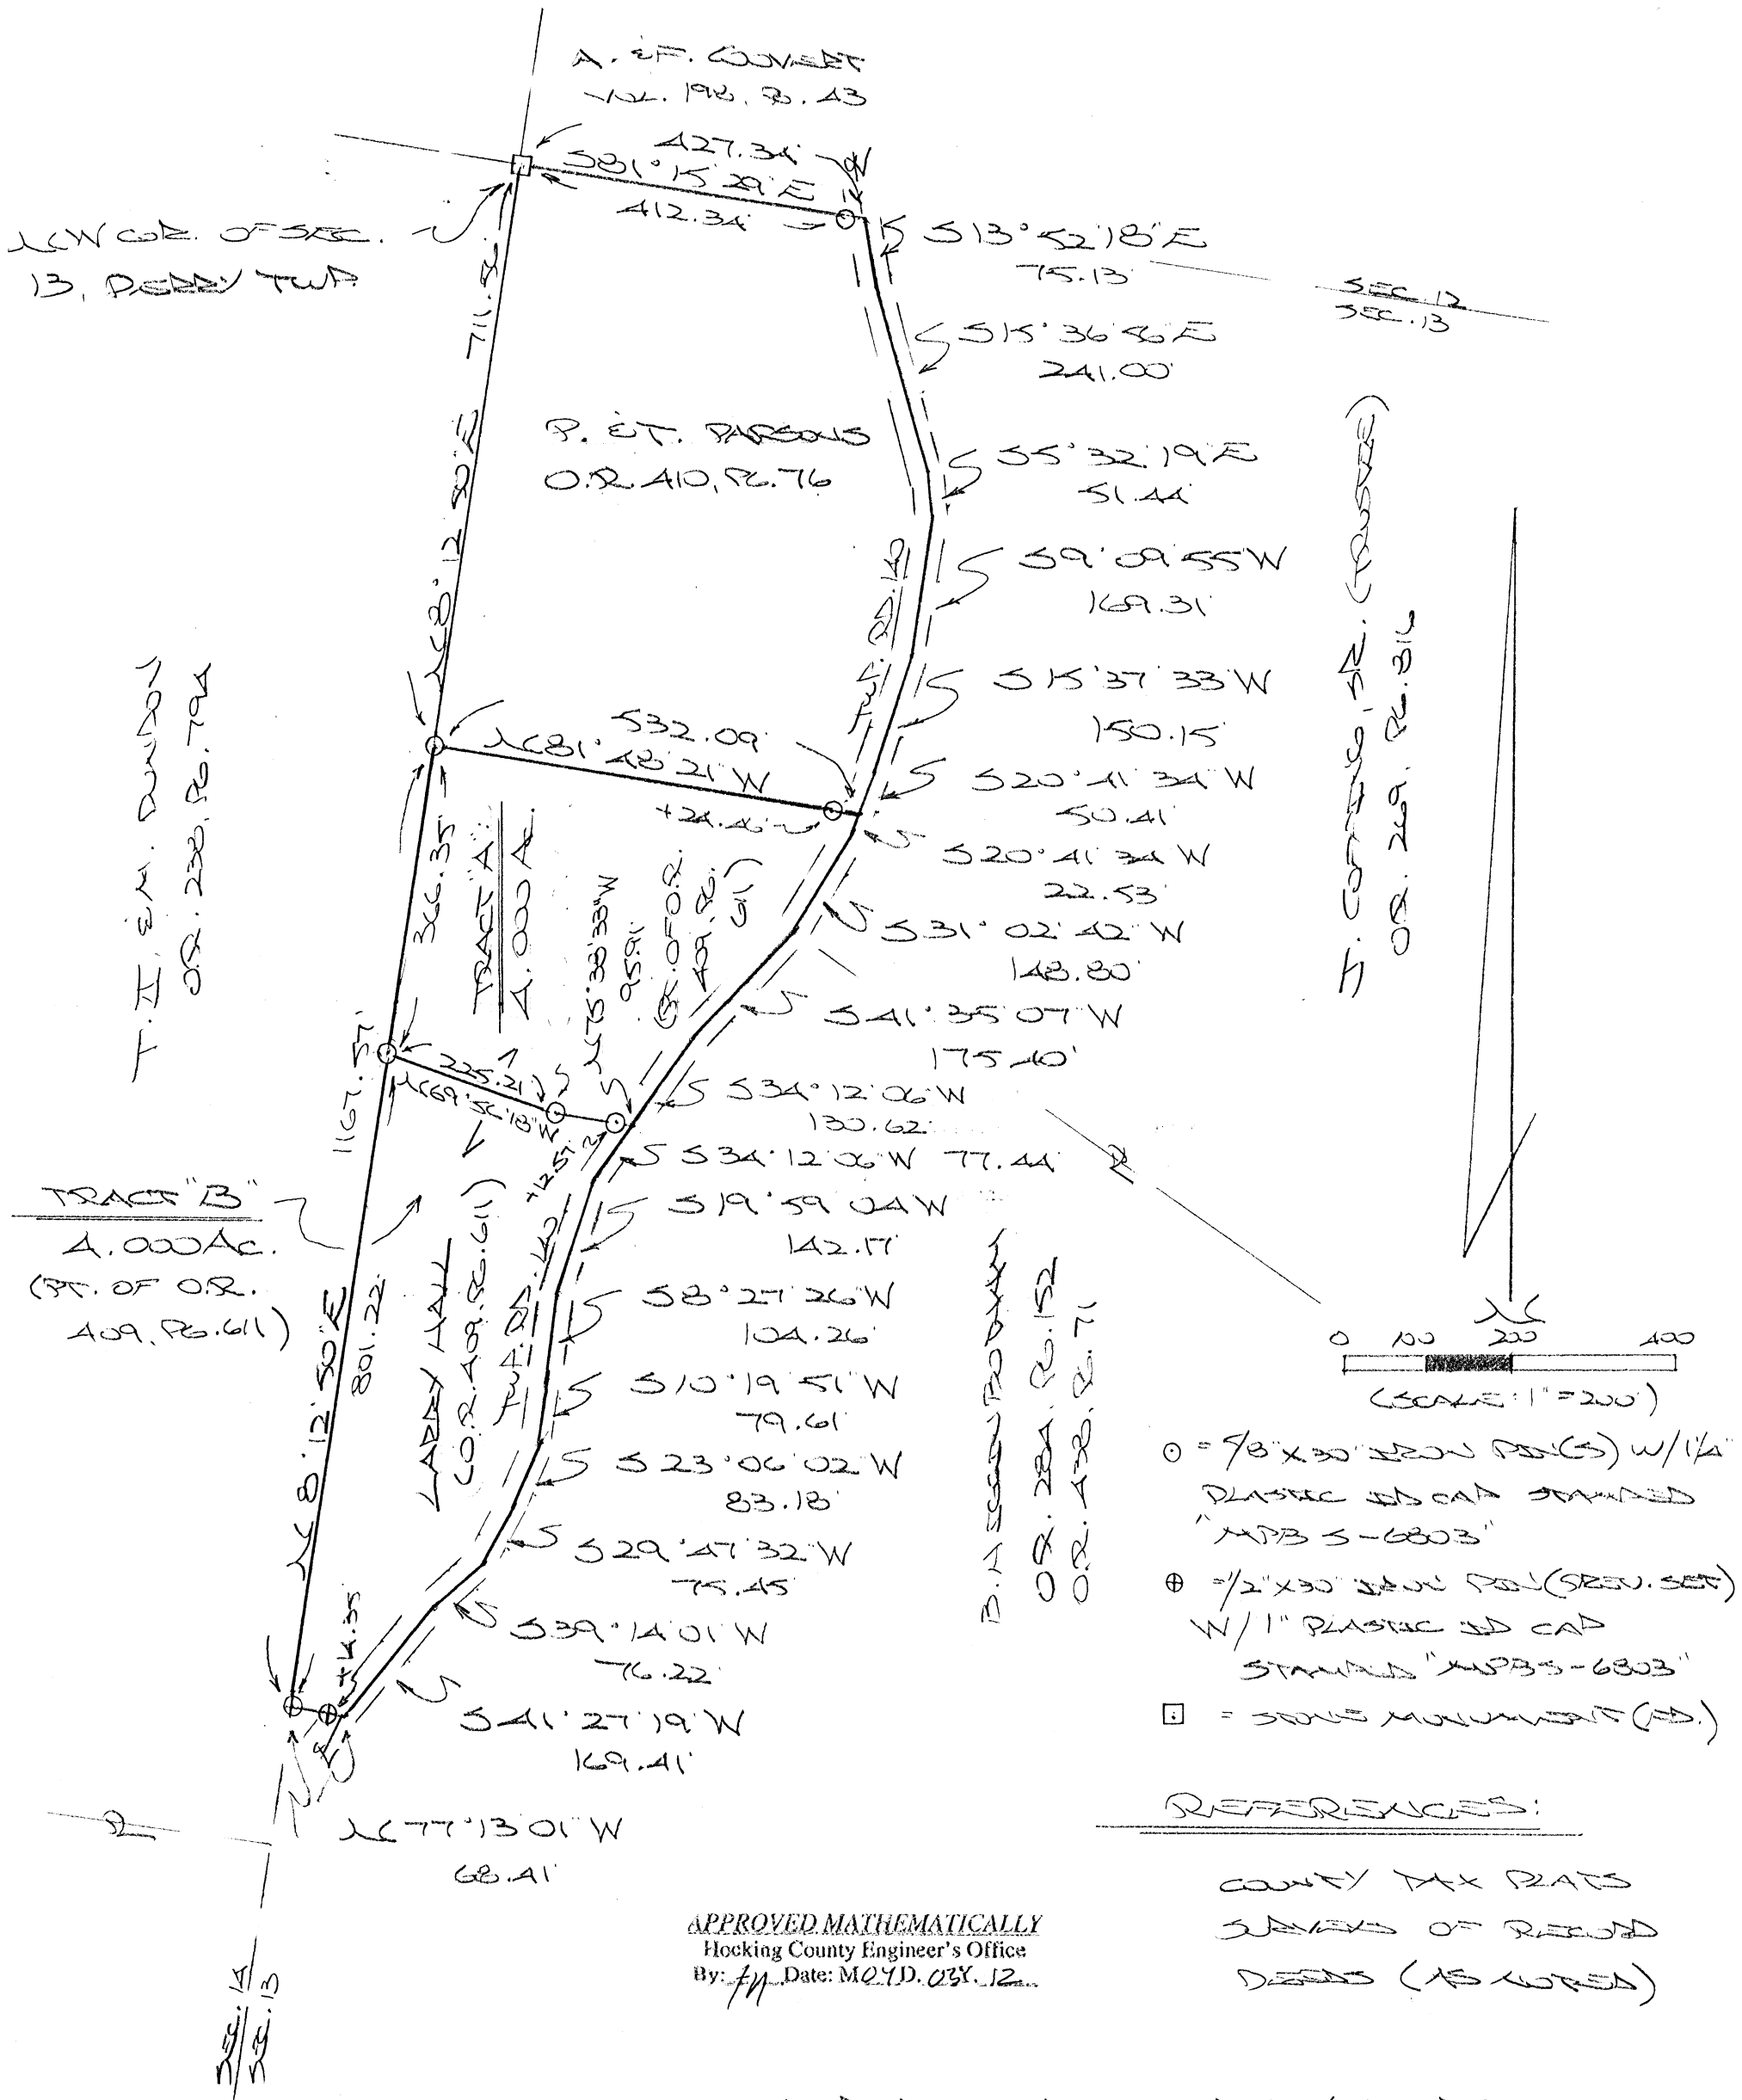 A. & F. COVERT
VOL. 198, PG. 43
427.34'
S81°15'29"E
412.34'
NW COR. OF SEC.
13, PERRY TWP.
S13°52'18"E
75.13'
SEC. 12
SEC. 13
S15°36'56"E
241.00'
P. & T. PARSONS
O.R. 410, PG. 76
S5°32'19"E
51.44'
S9°09'55"W
169.31'
S15°37'33"W
150.15'
S20°41'34"W
50.41'
S20°41'34"W
22.53'
S31°02'42"W
148.80'
S41°35'07"W
175.40'
S34°12'06"W
130.62'
S34°12'06"W 77.44'
S19°59'04"W
142.17'
S8°27'26"W
104.26'
S10°19'51"W
79.61'
S23°06'02"W
83.18'
S29°47'32"W
75.45'
S39°14'01"W
76.22'
S41°27'19"W
169.41'
N77°13'01"W
68.41'
N8°12'50"E
532.09'
N81°48'21"W
366.35'
TRACT "A"
4.000 Ac.
N75°38'33"W
95.91'
(PT. OF O.R.
409, PG.
611)
225.21'
N69°56'18"W
1167.57'
TRACT "B"
4.000 Ac.
(PT. OF O.R.
409, PG. 611)
N8°12'50"E
801.22'
LARRY
(O.R. 409, PG. 611)
O.R. 269, PG. 316
0 100 200 400
(SCALE: 1" = 200')
⊙ = 5/8" X 30" IRON PIN(S) W/ 1 1/4"
PLASTIC ID CAP STAMPED
"MPB S-6803"
⊕ = 1/2" X 30" IRON PIN (PREV. SET)
W/ 1" PLASTIC ID CAP
STAMPED "MPB S-6803"
⊡ = STONE MONUMENT (FD.)
REFERENCES:
COUNTY TAX PLATS
SURVEYS OF RECORD
DEEDS (AS NOTED)
APPROVED MATHEMATICALLY
Hocking County Engineer's Office
By: Date: M04D.03Y.12
SEC. 14
SEC. 13